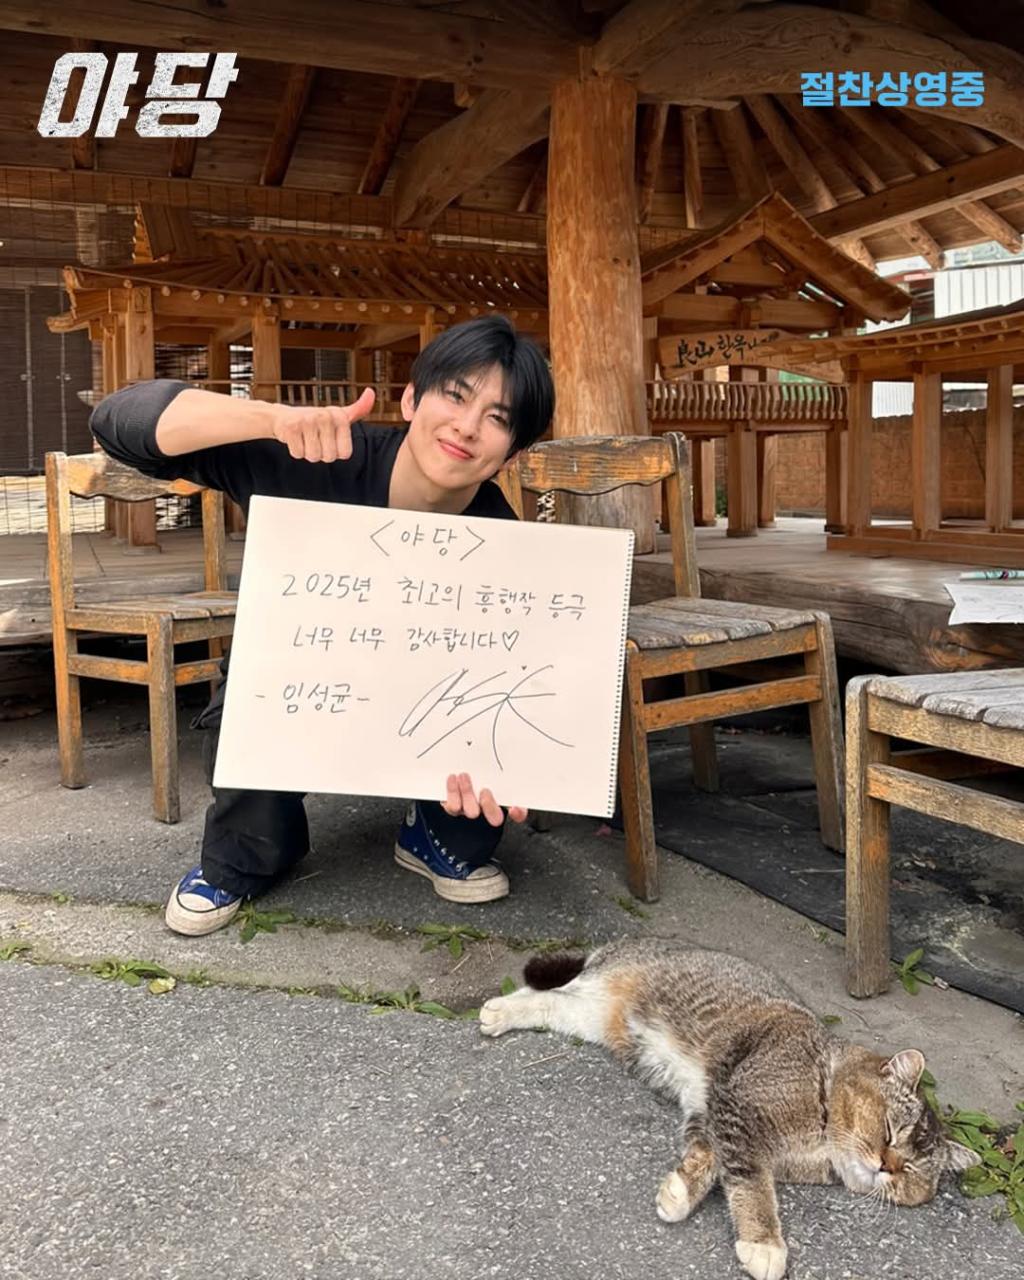 야당
절찬상영중
艮山 한옥
<야당>
2025년 최고의 흥행작 등극
너무 너무 감사합니다♡
- 임성균 -